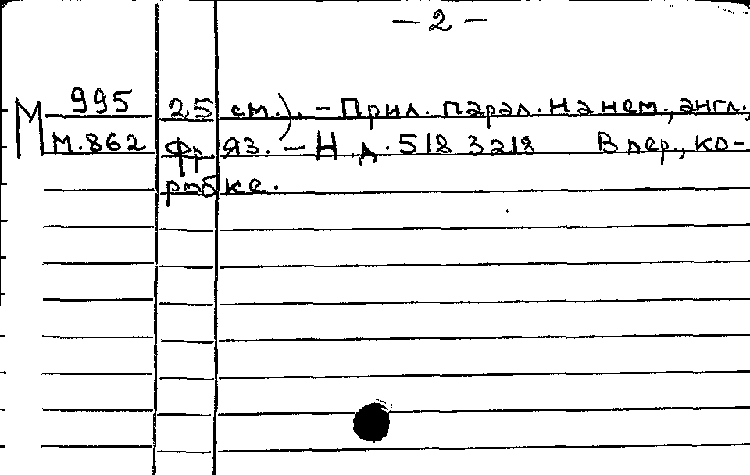 — 2 —
М 995 25 см.). – Прил. парал. на нем., англ.,
М.862 фр. яз. – Н.д. 518 3218 В пер., ко-
робке.